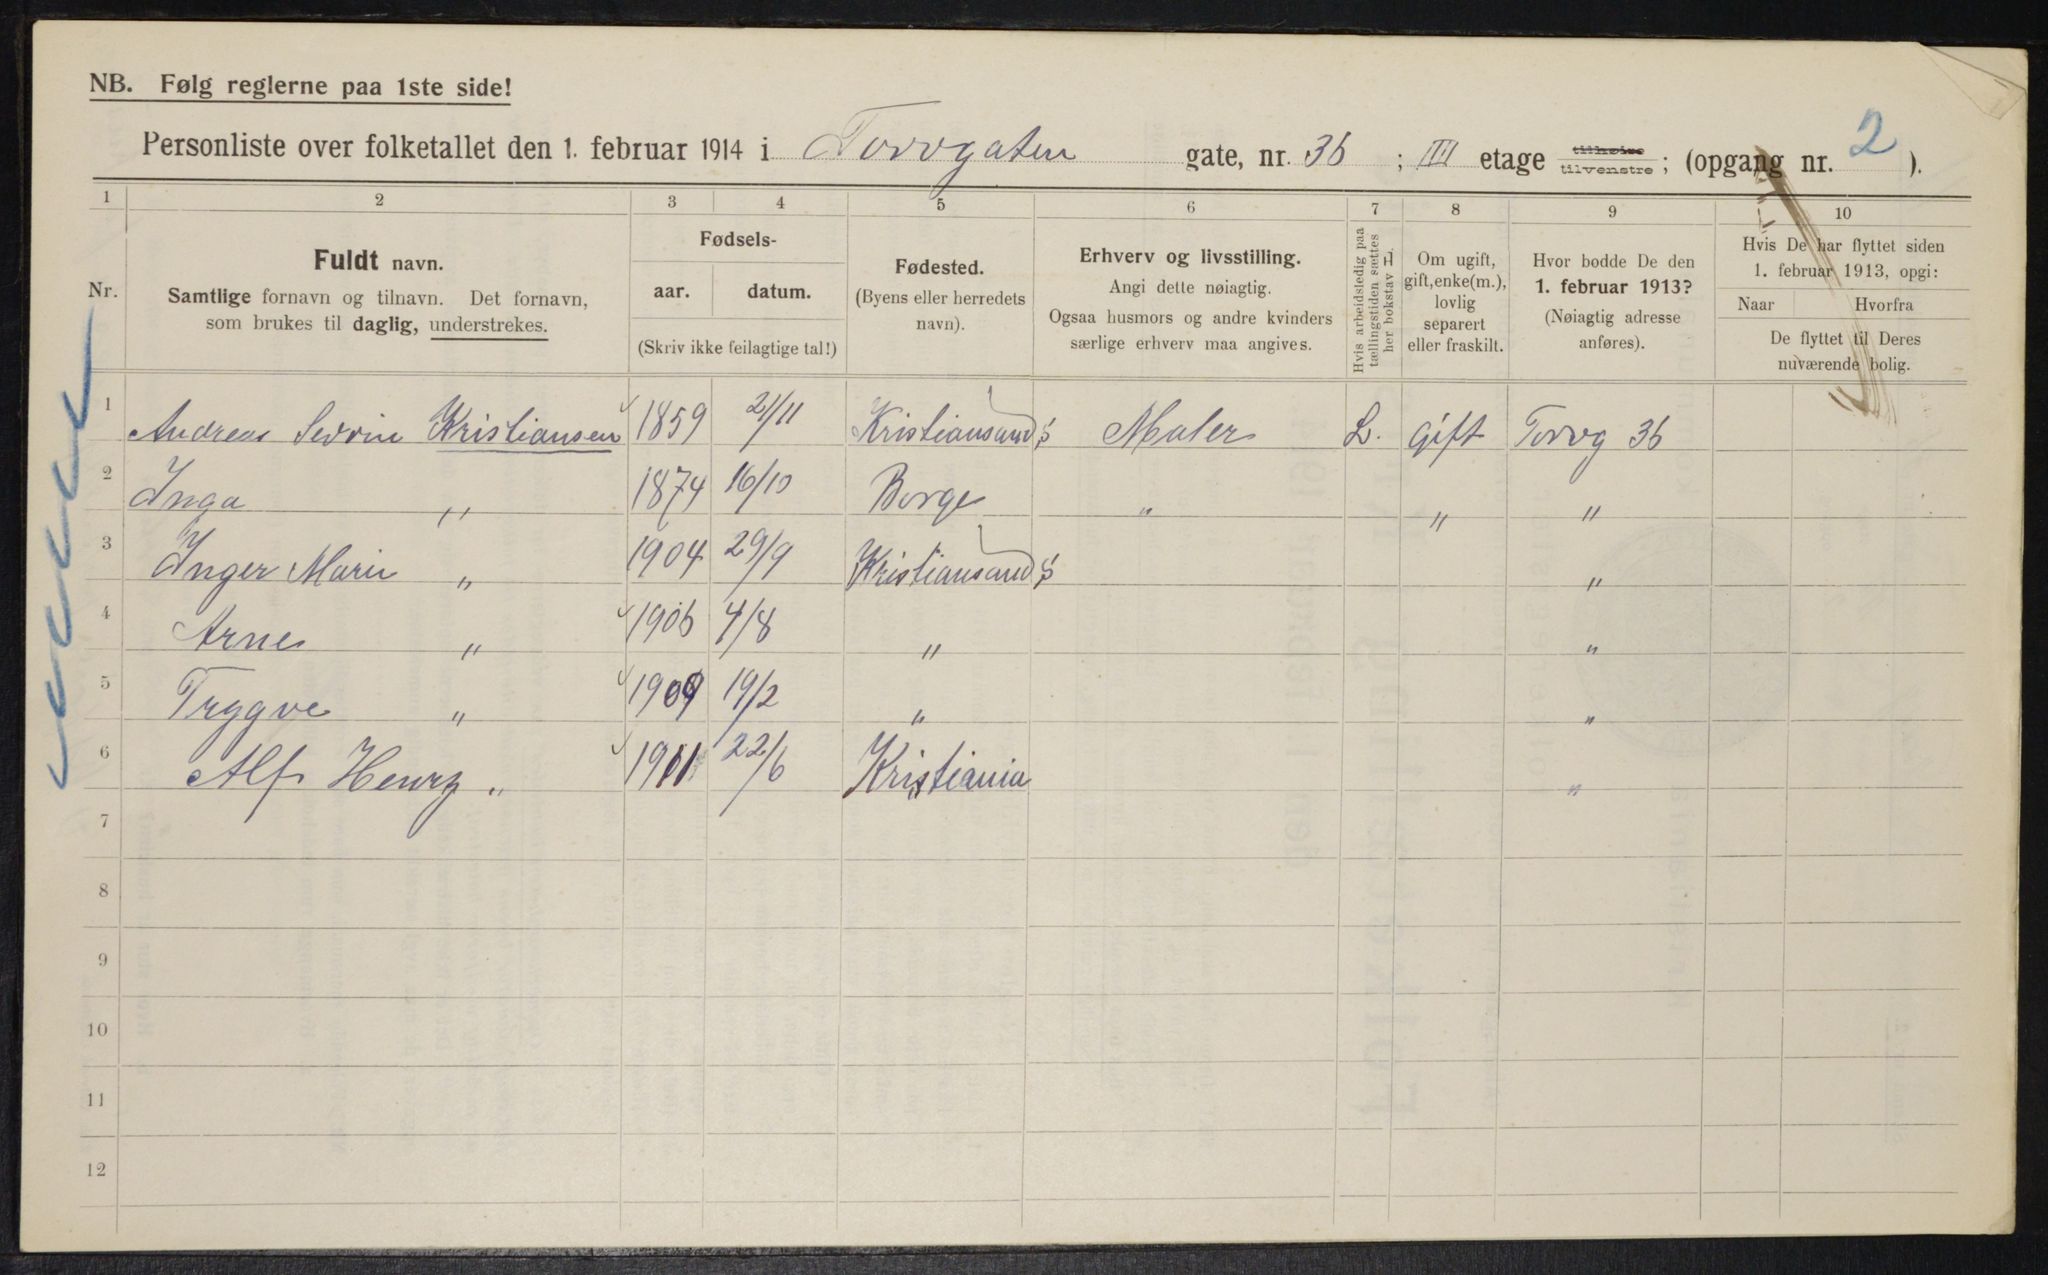 NB. Følg reglerne paa 1ste side!
Personliste over folketallet den 1. februar 1914 i Torvgaten gate, nr. 36 ; III etage tilhøire tilvenstre ; (opgang nr. 2 ).
1 2 3 4 5 6 7 8 9 10
Nr.
Fuldt navn.
Samtlige fornavn og tilnavn. Det fornavn,
som brukes til daglig, understrekes.
Fødsels-
aar. datum.
(Skriv ikke feilagtige tal!)
Fødested.
(Byens eller herredets
navn).
Erhverv og livsstilling.
Angi dette nøiagtig.
Ogsaa husmors og andre kvinders
særlige erhverv maa angives.
Hvis arbeidsledig paa
tællingstiden sættes
her bokstav L.
Om ugift,
gift, enke(m.),
lovlig
separert
eller fraskilt.
Hvor bodde De den
1. februar 1913?
(Nøiagtig adresse
anføres).
Hvis De har flyttet siden
1. februar 1913, opgi:
Naar Hvorfra
De flyttet til Deres
nuværende bolig.
1 Andreas Servin Kristiansen 1859 21/11 Kristiansand S Maler L. gift Torvg 36
2 Inga " 1874 16/10 Borge " " "
3 Inger Marie " 1904 29/9 Kristiansand S "
4 Arne " 1906 4/8 " "
5 Trygve " 1909 19/2 " "
6 Alf Henry " 1911 22/6 Kristiania "
7
8
9
10
11
12